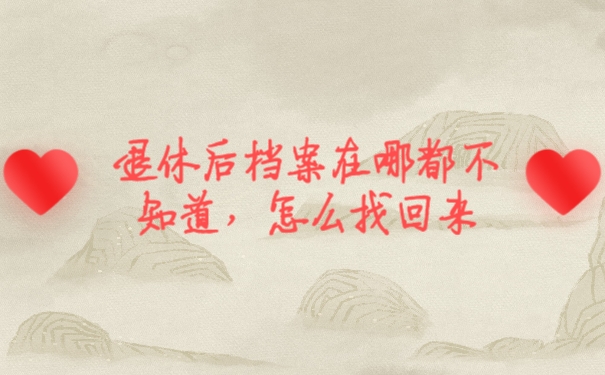 退休后档案在哪都不
知道，怎么找回来